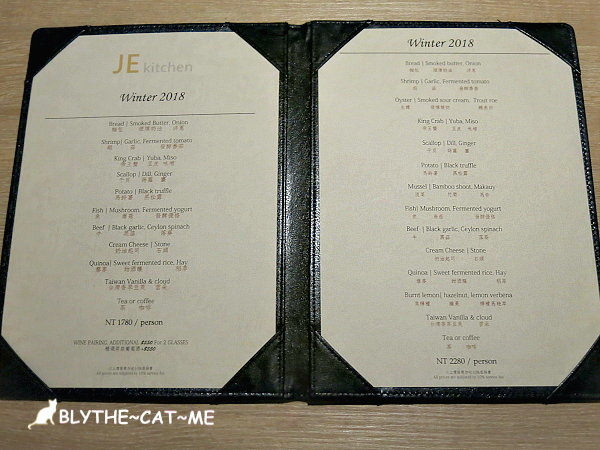 JE kitchen
Winter 2018
Bread | Smoked Butter, Onion
麵包 煙燻奶油 洋蔥
Shrimp | Garlic, Fermented tomato
蝦 蒜 發酵番茄
King Crab | Yuba, Miso
帝王蟹 豆皮 味噌
Scallop | Dill, Ginger
干貝 蒔蘿 薑
Potato | Black truffle
馬鈴薯 黑松露
Fish | Mushroom, Fermented yogurt
魚 蘑菇 發酵優格
Beef | Black garlic, Ceylon spinach
牛 黑蒜
Cream Cheese | Stone
奶油起司 石頭
Quinoa | Sweet fermented rice, Hay
藜麥 甜酒釀 稻草
Taiwan Vanilla & cloud
台灣香草豆莢 雲朵
Tea or coffee
茶 咖啡
NT 1780 / person
WINE PAIRING ADDITIONAL For 2 GLASSES
All prices are subjected to 10% service fee
Winter 2018
Bread | Smoked butter, Onion
麵包 煙燻奶油 洋蔥
Shrimp | Garlic, Fermented tomato
蝦 蒜 發酵番茄
Oyster | Smoked sour cream, Trout roe
生蠔 煙燻酸奶 鱒魚卵
King Crab | Yuba, Miso
帝王蟹 豆皮 味噌
Scallop | Dill, Ginger
干貝 蒔蘿 薑
Potato | Black truffle
馬鈴薯 黑松露
Mussel | Bamboo shoot, Makauy
淡菜 竹筍 馬告
Fish | Mushroom, Fermented yogurt
魚 蘑菇 發酵優格
Beef | Black garlic, Ceylon spinach
牛 黑蒜
Cream Cheese | Stone
奶油起司 石頭
Quinoa | Sweet fermented rice, Hay
藜麥 甜酒釀 稻草
Burnt lemon | hazelnut, lemon verbena
焦檸檬 榛果 檸檬馬鞭草
Taiwan Vanilla & cloud
台灣香草豆莢 雲朵
Tea or coffee
茶 咖啡
NT 2280 / person
All prices are subjected to 10% service fee
BLYTHE~CAT~ME